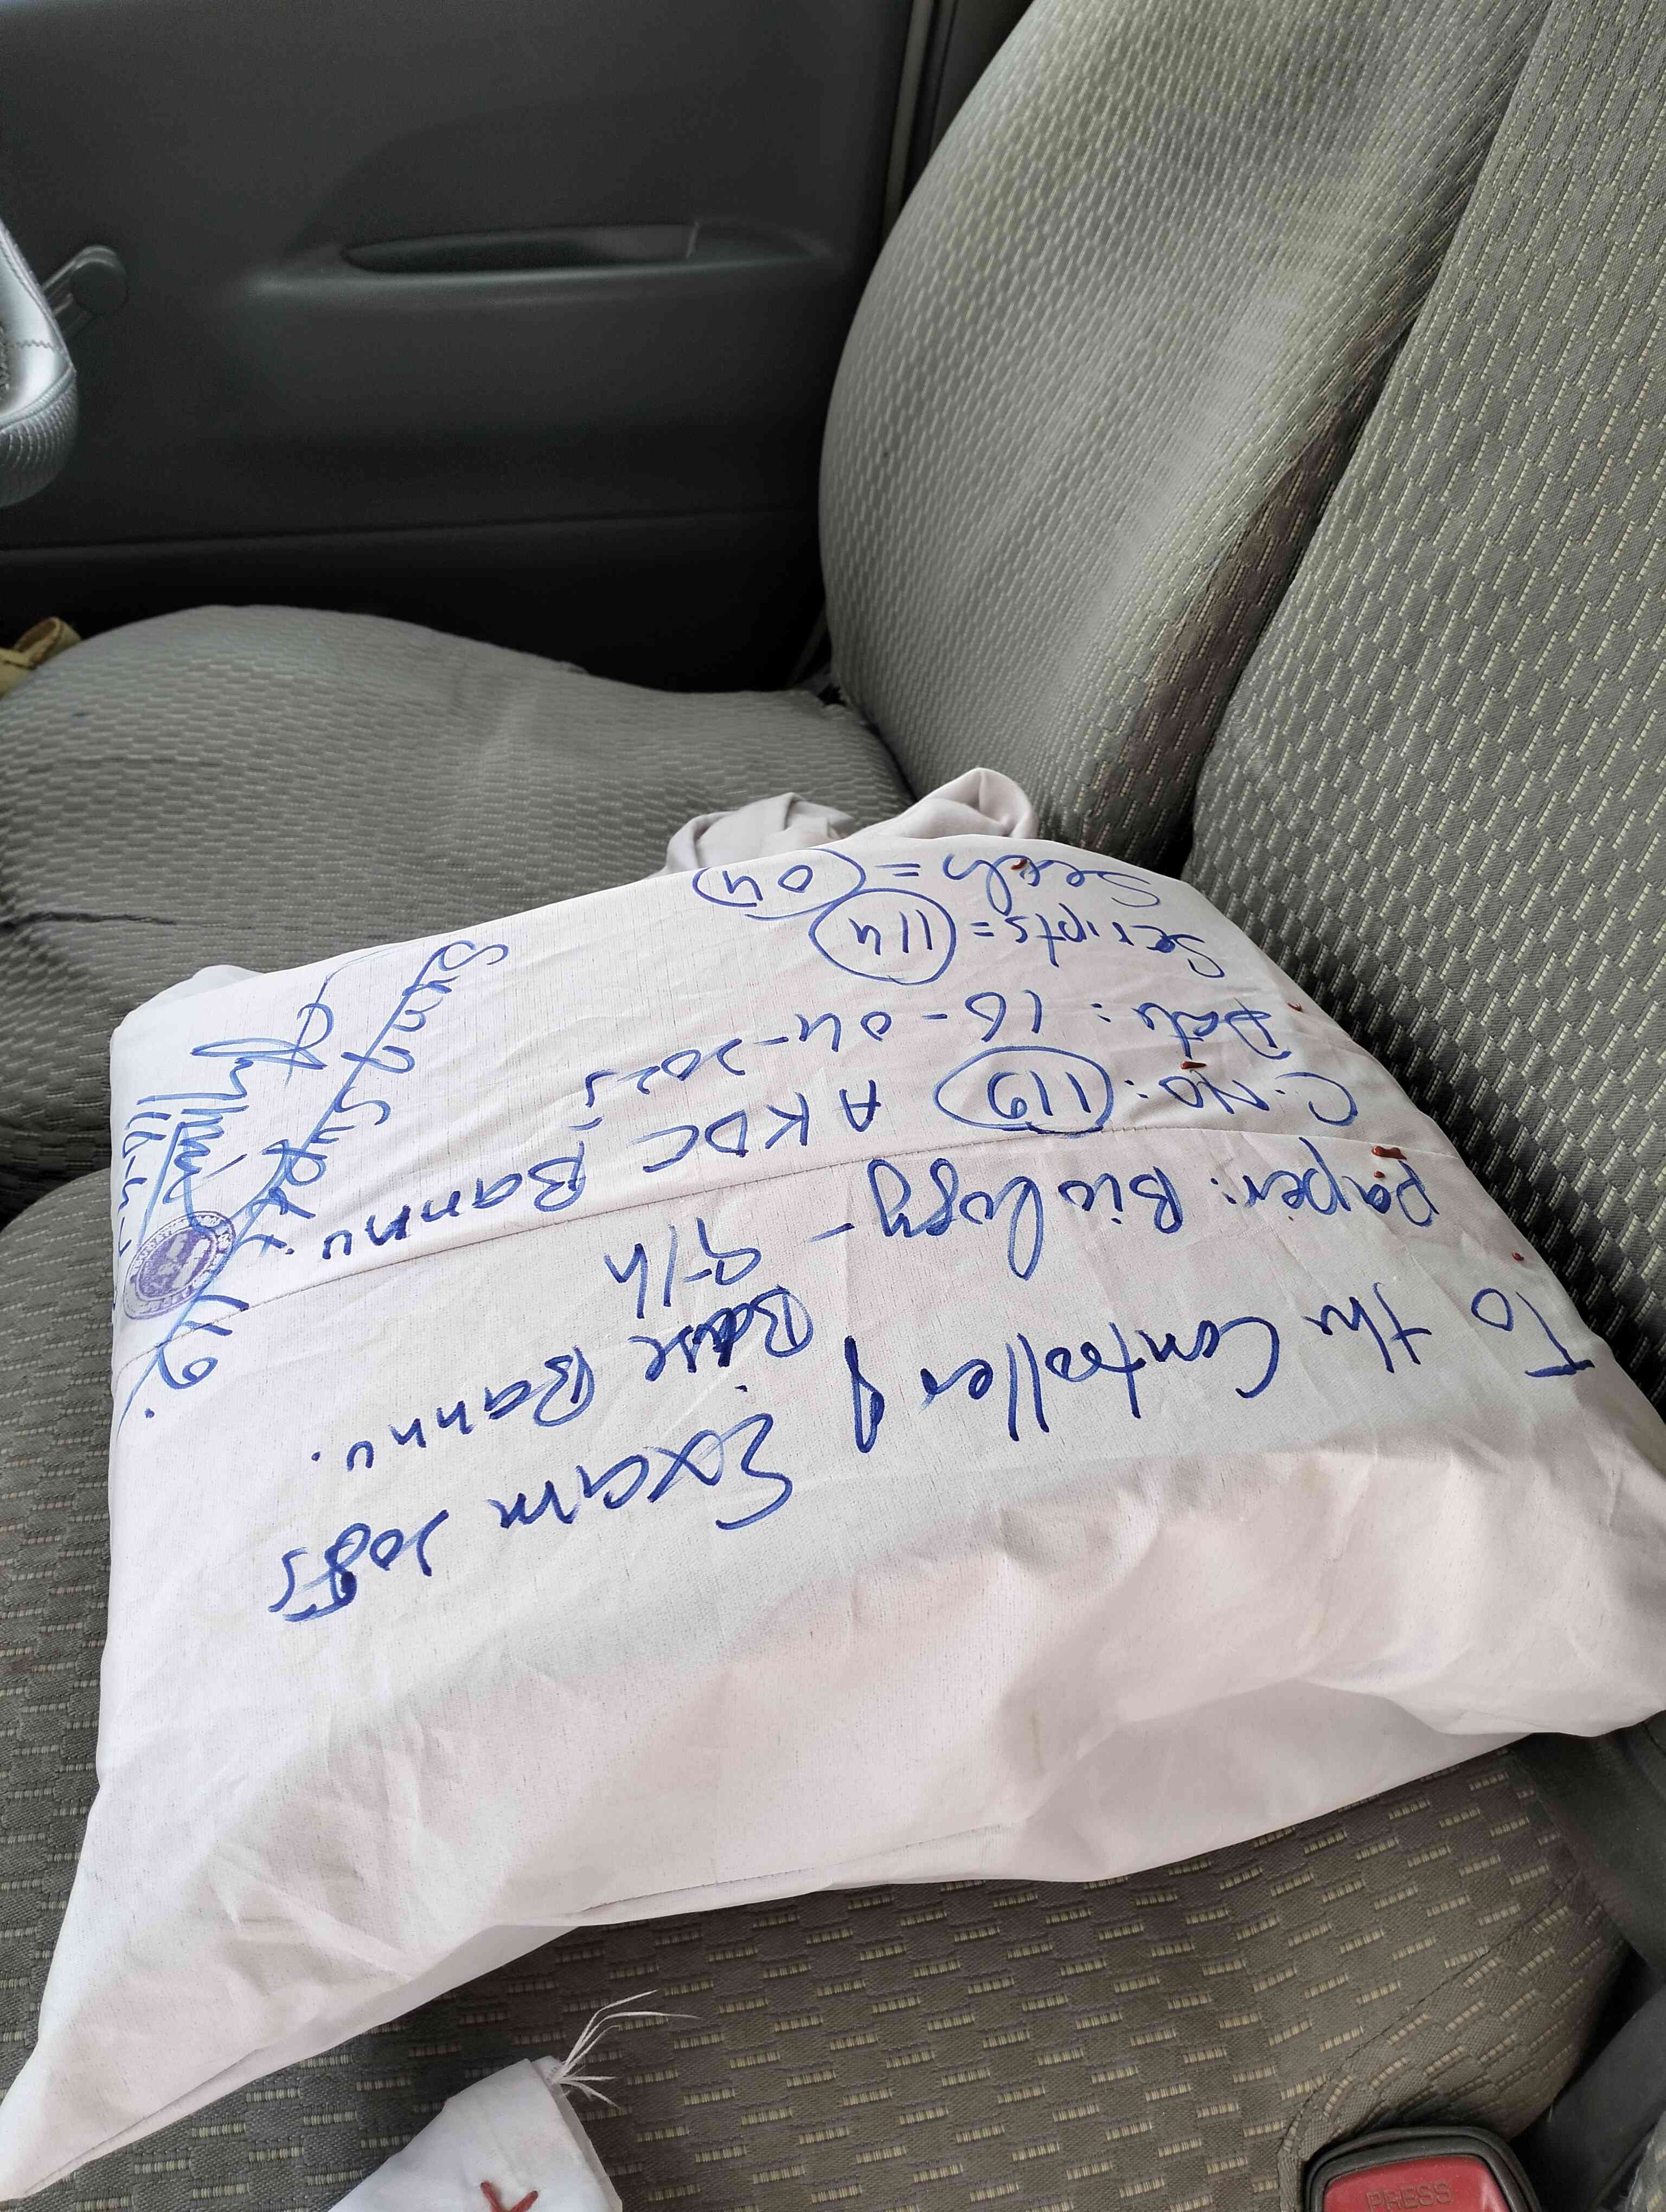 To the Controller of Exam 2025
Bise Bannu.
Paper: Biology - 9th
C.No: 119 AKDC Bannu.
Date: 16-04-2025
Scripts = 114
= 04
Supdt
119
16-4-
PRESS